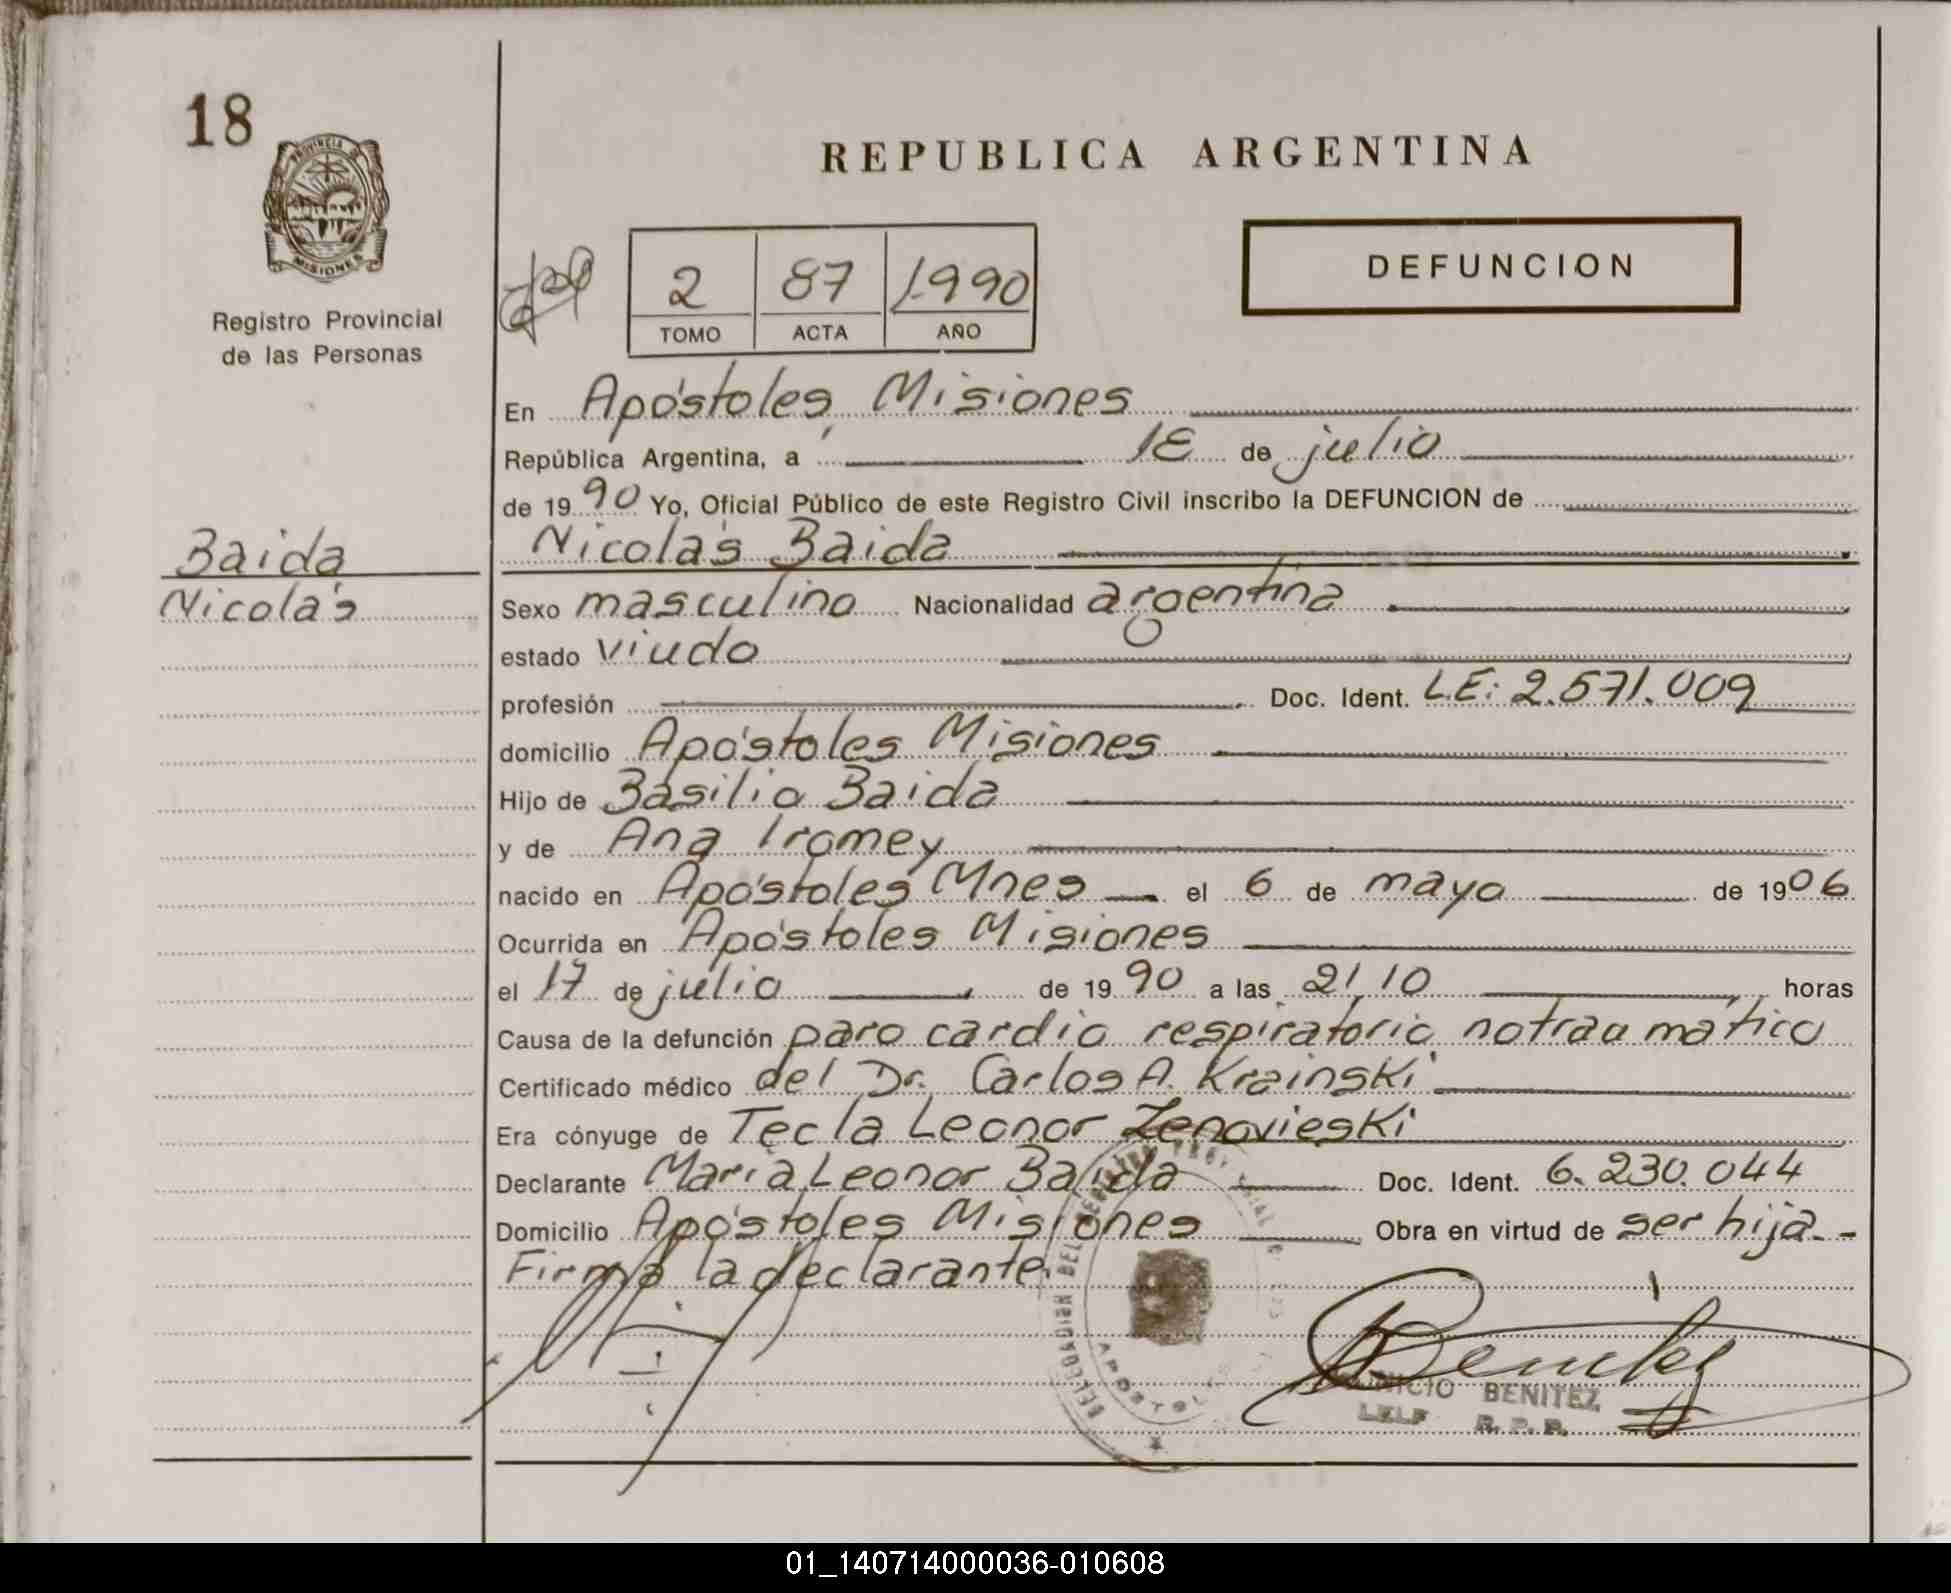 18
PROVINCIA DE
MISIONES
Registro Provincial
de las Personas
REPUBLICA ARGENTINA
2 87 1990
TOMO ACTA AÑO
DEFUNCION
En Apóstoles, Misiones
República Argentina, a 18 de julio
de 1990 Yo, Oficial Público de este Registro Civil inscribo la DEFUNCION de
Baida
Nicolás
Nicolás Baida
Sexo masculino Nacionalidad argentina
estado viudo
profesión Doc. Ident. L.E: 2.571.009
domicilio Apóstoles Misiones
Hijo de Basilio Baida
y de Ana Iromey
nacido en Apóstoles Mnes el 6 de mayo de 1906
Ocurrida en Apóstoles Misiones
el 17 de julio de 1990 a las 21,10 horas
Causa de la defunción paro cardio respiratorio notraumático
Certificado médico del Dr. Carlos A. Krainski
Era cónyuge de Tecla Leonor Zenovieski
Declarante María Leonor Baida Doc. Ident. 6.230.044
Domicilio Apóstoles Misiones Obra en virtud de ser hija.-
Firma la declarante.
DELEGACION DEL
Benitez
BENITEZ
R. P. P.
01_140714000036-010608